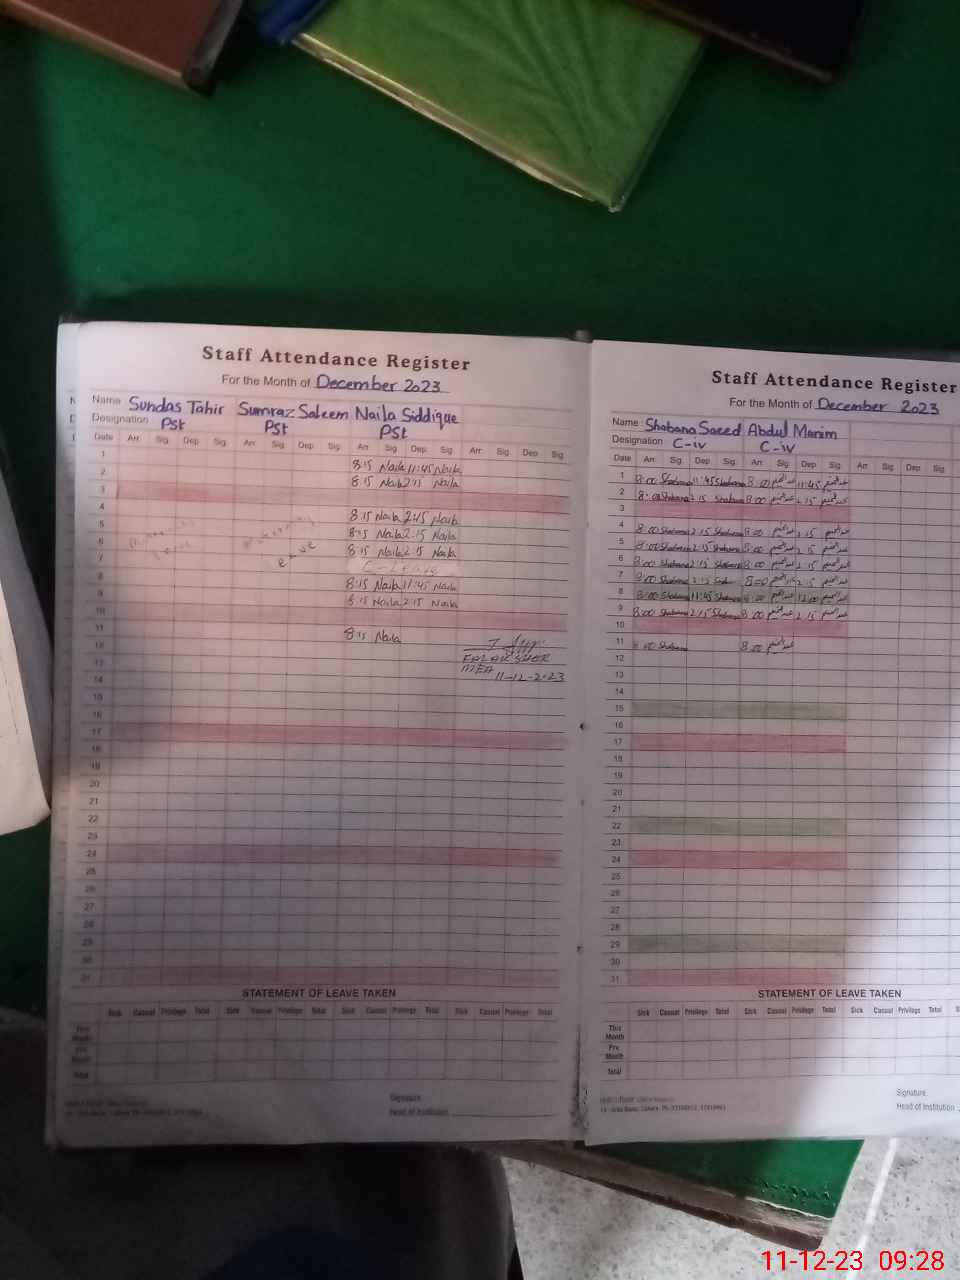 Staff Attendance Register
For the Month of December 2023
Name Sundas Tahir Sumraz Saleem Naila Siddique
Designation Pst Pst Pst
Date Arr Sig Dep Sig Arr Sig Dep Sig Arr Sig Dep Sig Arr Sig Dep Sig
1 8:15 Naila 11:45 Naila
2 8:15 Naila 2:15 Naila
3
4 8:15 Naila 2:45 Naila
5 8:15 Naila 2:15 Naila
6 8:15 Naila 2:15 Naila
7 C-Leave
8 8:15 Naila 11:45 Naila
9 8:15 Naila 2:15 Naila
10
11 8:15 Naila
12
13 MEA
14 11-12-2023
15
16
17
18
19
20
21
22
23
24
25
26
27
28
29
30
31
STATEMENT OF LEAVE TAKEN
Sick Casual Privilege Total Sick Casual Privilege Total Sick Casual Privilege Total Sick Casual Privilege Total
This Month
Pre Month
Total
Signature
Head of Institution
Staff Attendance Register
For the Month of December 2023
Name : Shabana Saeed Abdul Munim
Designation C-iv C-iv
Date Arr Sig Dep Sig Arr Sig Dep Sig Arr Sig Dep Sig
1 8:00 Shabana 11:45 Shabana 8:00 عبدالمنعم 11:45 عبدالمنعم
2 8:00 Shabana 2:15 Shabana 8:00 عبدالمنعم 2:15 عبدالمنعم
3
4 8:00 Shabana 2:15 Shabana 8:00 عبدالمنعم 2:15 عبدالمنعم
5 8:00 Shabana 2:15 Shabana 8:00 عبدالمنعم 2:15 عبدالمنعم
6 8:00 Shabana 2:15 Shabana 8:00 عبدالمنعم 2:15 عبدالمنعم
7 8:00 Shabana 2:15 8:00 عبدالمنعم 2:15 عبدالمنعم
8 8:00 Shabana 11:45 Shabana 8:00 عبدالمنعم 12:00 عبدالمنعم
9 8:00 Shabana 2:15 Shabana 8:00 عبدالمنعم 2:15 عبدالمنعم
10
11 8:00 Shabana 8:00 عبدالمنعم
12
13
14
15
16
17
18
19
20
21
22
23
24
25
26
27
28
29
30
31
STATEMENT OF LEAVE TAKEN
Sick Casual Privilege Total Sick Casual Privilege Total Sick Casual Privilege Total
This Month
Pre Month
Total
Signature
Head of Institution
11-12-23 09:28